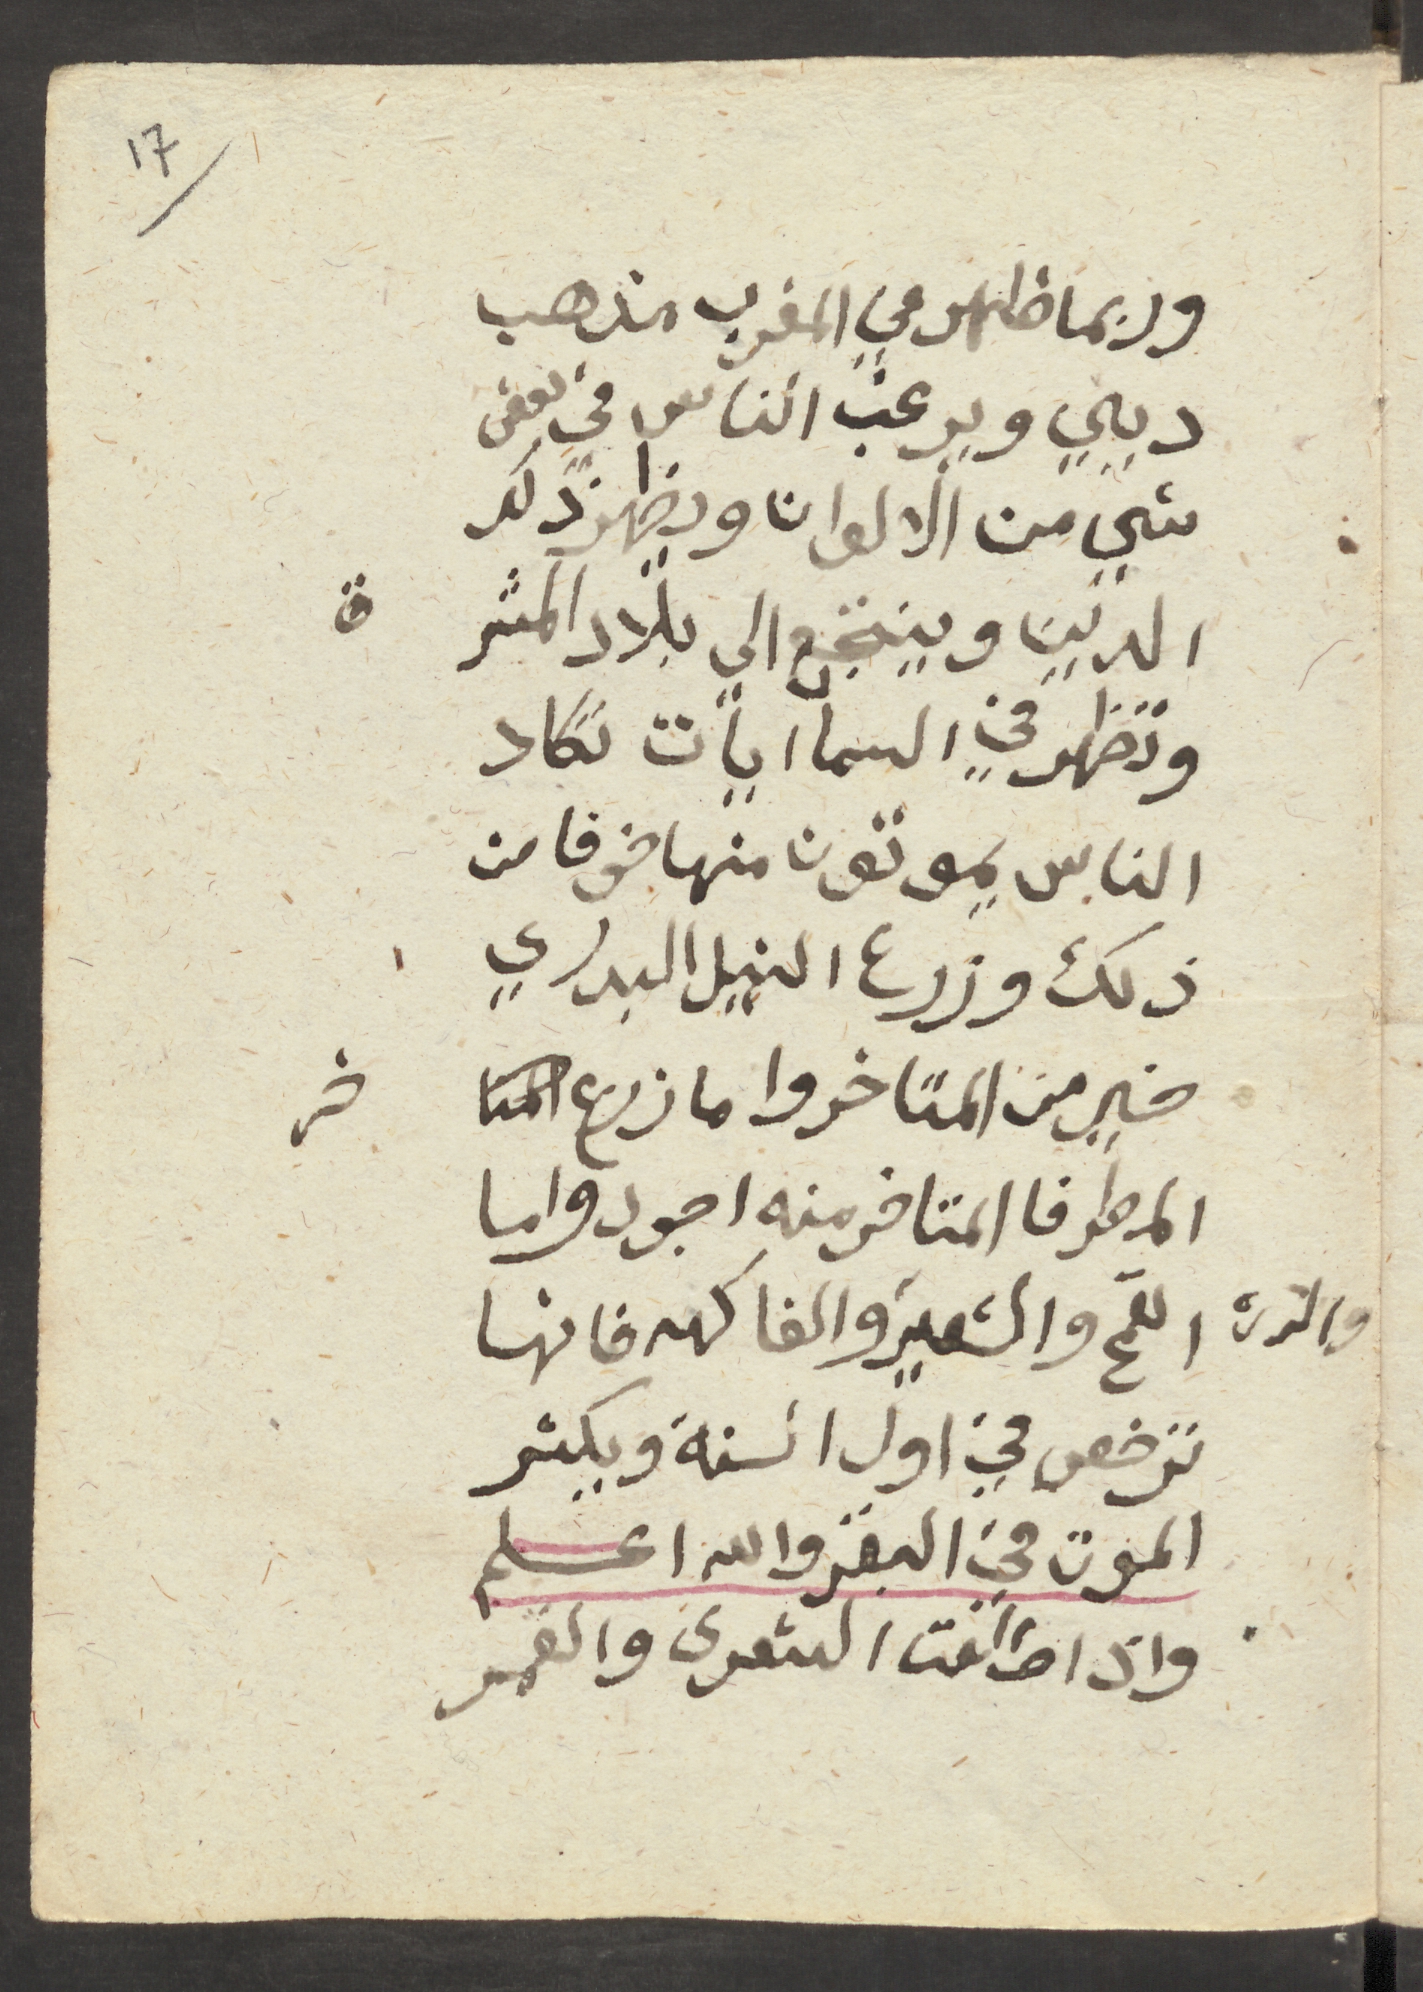 17
وربما ظهر في المغرب مذهب
ديني ويرغب الناس في بعض
شي من الالوان ويظهر ذلك
الدين وينتجع الي بلاد المشر ق
وتظهر في السما ايات تكاد
الناس يموتون منها خوفا من
ذلك وزرع النيل البدري
خير من المتاخر وا ما زرع المتا خر
المطر فا المتاخر منه اجود واما
والذرة القمح والشعير والفاكهه فانها
ترخص في اول السنة ويكثر
الموت في البقر والله اعلم
واذا طلعت الشعرى والقمر